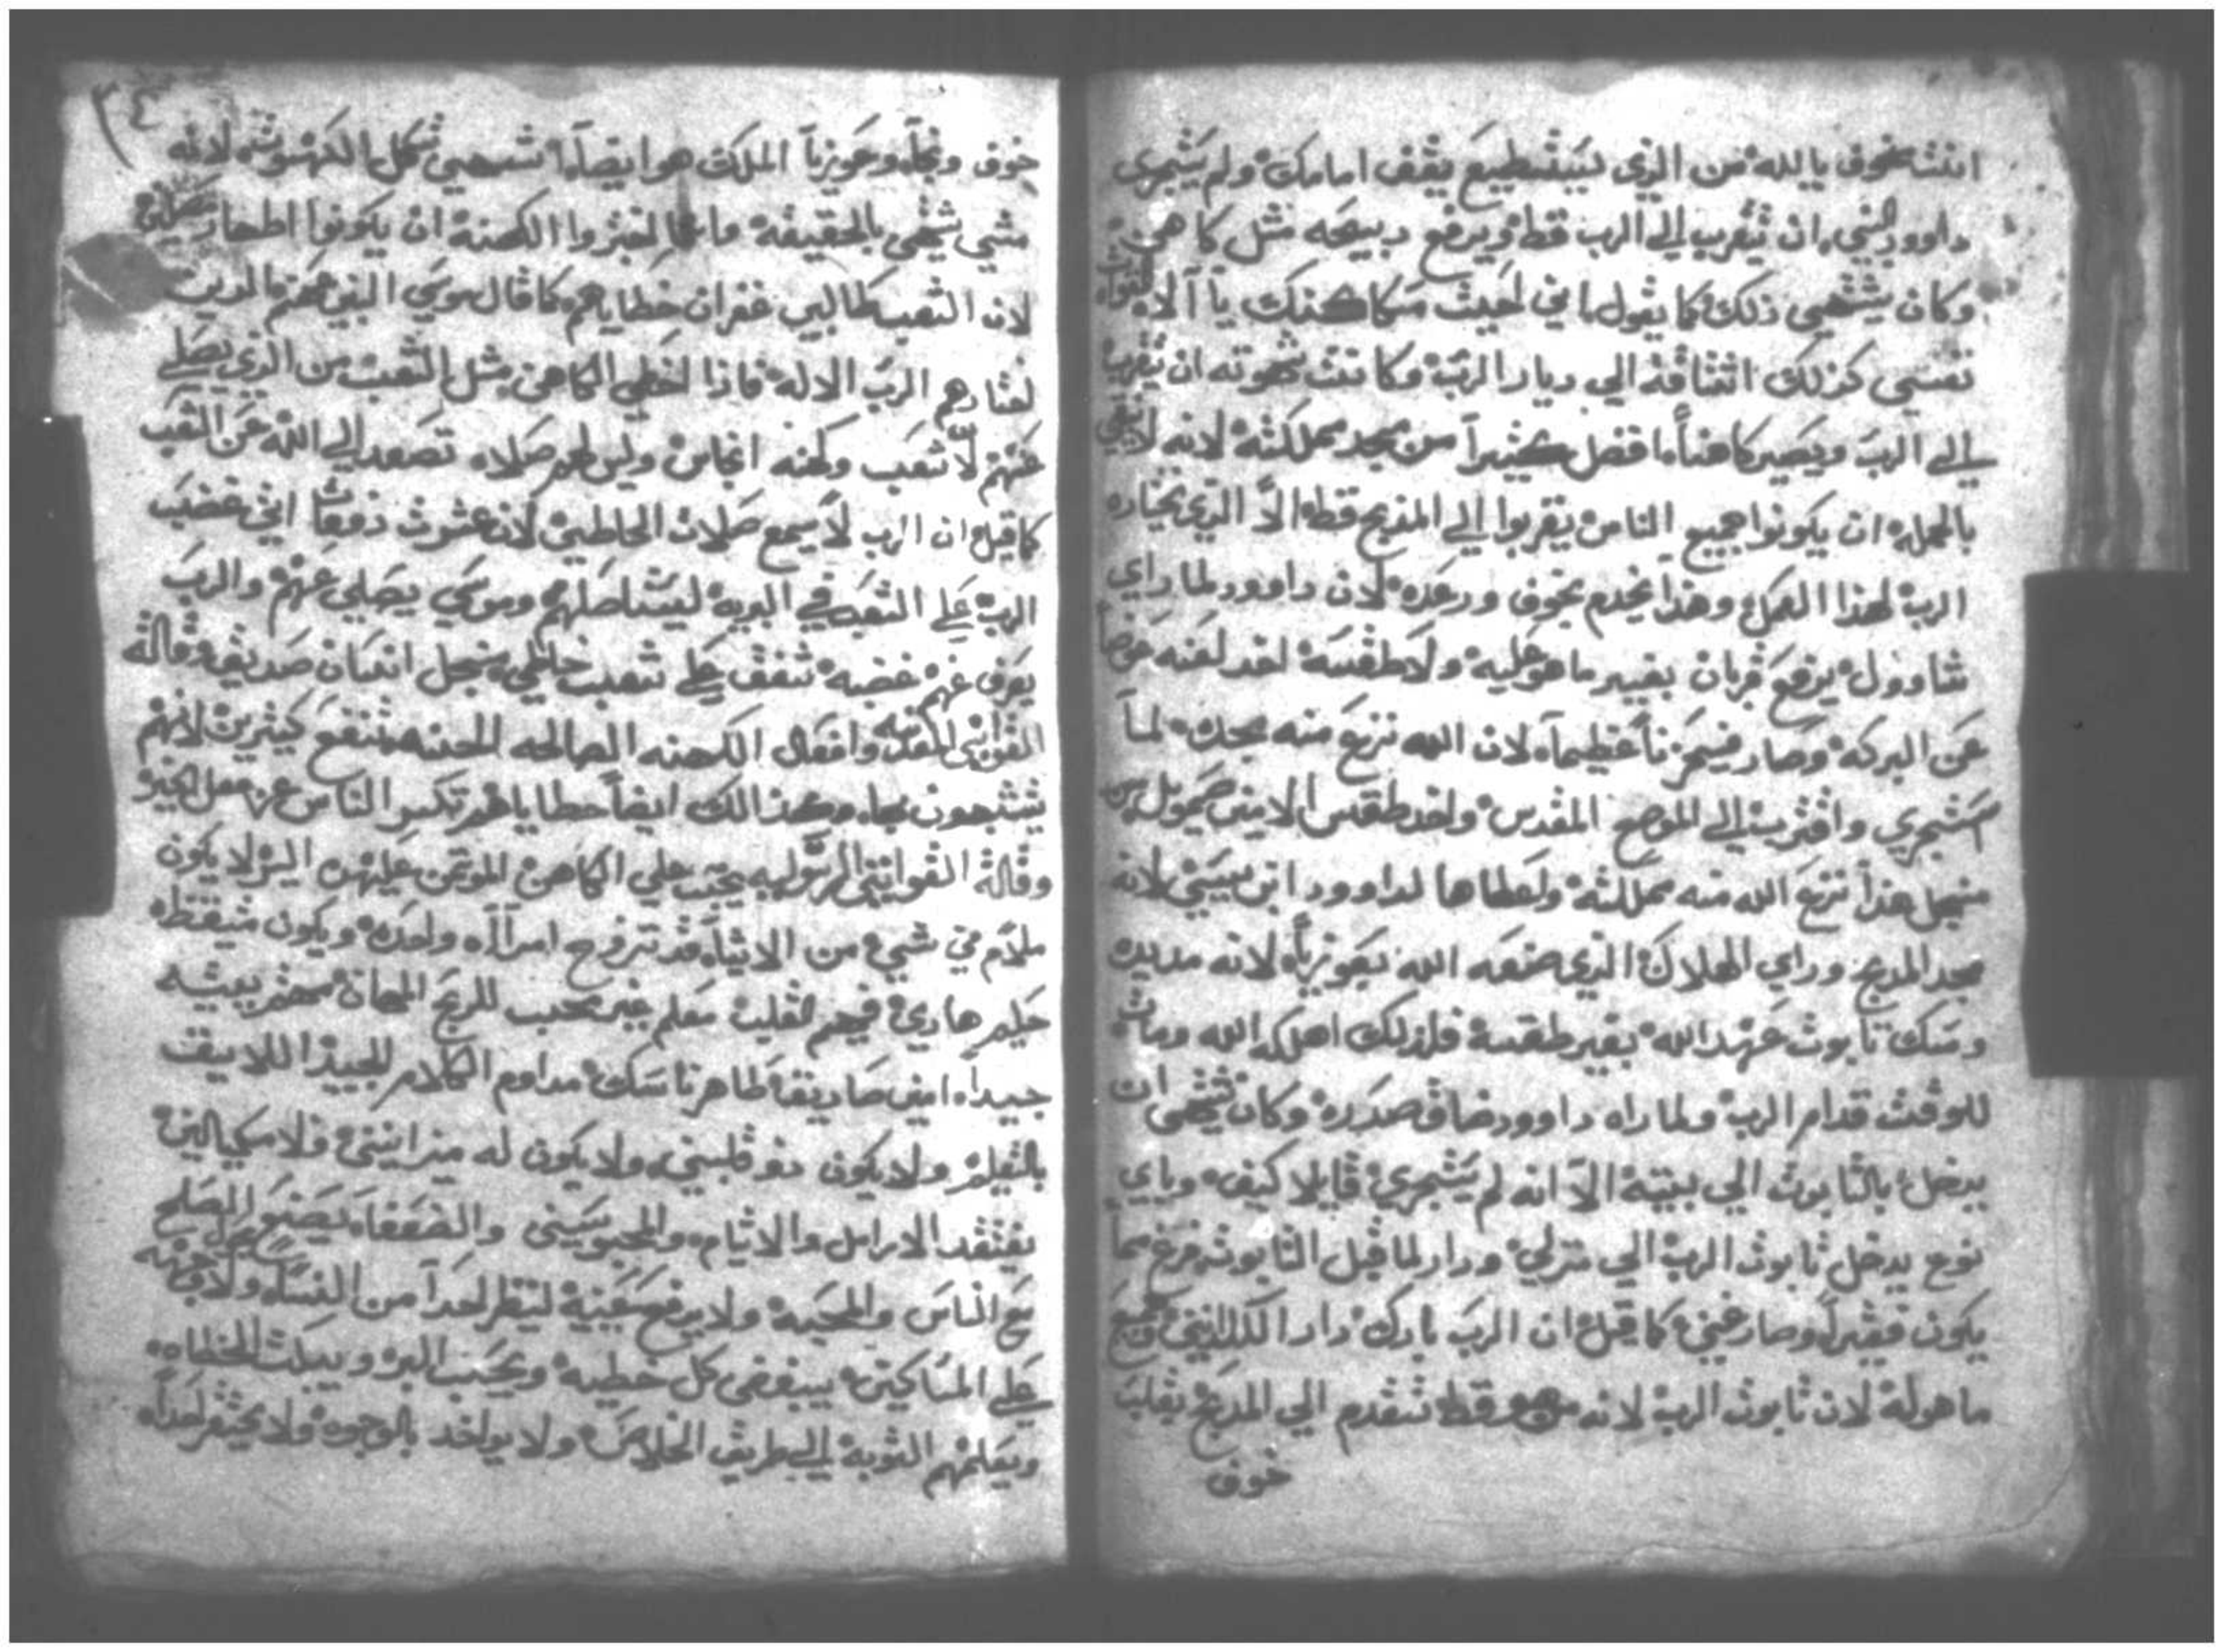 انت مخوف يا الله من الذي يستطيع يقف امامك ولم يتجري
داوود النبي ان يتقرب الي الرب قط ويرفع دبيحه مثل كاهن
وكان يشتهي ذلك كما يقول اني احببت مساكنك يا الاه القوات
نفسي كذلك اشتاقة الي ديار الرب وكانت شهوته ان يتقرب
الي الرب ويصير كاهناً افضل كثيراً من مجد مملكته لانه لا ينبغي
بالجمله ان يكونوا جميع الناس يتقربوا الي المدبح قط الاّ الذي يختاره
الرب لهذا العمل وهذا يخدم بخوف ورعده لان داوود لما راي
شاوول يرفع قربان بغير ما هو عليه ولا طقسه اخد لعنه عوضاً
عن البركه وصار في حزناً عظيماً لان الله نزع منه مجده لما
تجري واقترب الي الموضع المقدس واخد طقس الامين صمويل
منجل هذا نزع الله منه مملكته واعطاها لداوود ابن يسي لانه
مجد المدبح وراي الهلاك الذي صنعه الله بعوزياً لانه مد يده
ومسك تابوت عهد الله بغير طقسه فلذلك اهلكه الله ومات
للوقت قدام الرب ولما راه داوود ضاق صدره وكان يشتهي ان
يدخل بالتابوت الي بيته الاّ انه لم يتجري قايلا كيف وباي
نوع يدخل تابوت الرب الي منزلي ودار لما قبل التابوت فرغ مما
يكون فقيراً وصار غني كما قيل ان الرب بارك دار وجميع
ما هو له لان تابوت الرب لانه قط تتقدم الي المدبح بغلبت
خوف
٣٤
خوف وعوزياً الملك هو ايضاً اشتهي الكهنوت لانه
شي يشتهي بالحقيقة الكهنة ان يكونوا اطهار
لان الشعب طالبين غفران خطاياهم كما قال موسي النبي
الرب الاله فاذا اخطي الكاهن مثل الشعب من الذي يصلي
عنهم لا شعب وكهنه انجاس وليس لهم صلاه تصعد الي الله عن الشعب
كما قيل ان الرب لا يسمع صلات الخاطيين لان عشرت دفعات اني غضب
الرب علي الشعب في البريه ليستاصلهم وموسي يصلي عنهم والرب
يصرف عنهم غضبه شفق علي شعب خاطي منجل انسان صديق وقالة
القوانين المقدسه وافعال الكهنه الصالحه الحسنه تنفع كثيرين لانهم
يتشبهون بها وكذالك ايضاً خطاياهم تكسر الناس عن فعل الخير
وقالة القوانين الرسوليه يجب علي الكاهن الموتمن عليهم اليهم لا يكون
ملام في شي من الاشياء قد تزوج امرآآه واحده ويكون متيقظ
حليم هادي فهيم القلب معلم غير محب للربح المهان مهتم ببيته
جيداً امين صاديقاً طاهر ناسك مداوم الكلام الجيد اللايق
بالتعليم ولا يكون دو قلبين ولا يكون له ميزانين ولا مكيالين
يفتقد الارامل والايتام والمحبوسين والضعفا يصنع الصلح
مع الناس والمحبه ولا يرفع عينيه لينظر احداً من النسا ولا
علي المساكين يبغض كل خطيه ويحب البر ويبكت الخطاه
ويعلمهم التوبه الي طريق الخلاص ولا يواخد بالوجوه ولا يحتقر احداً